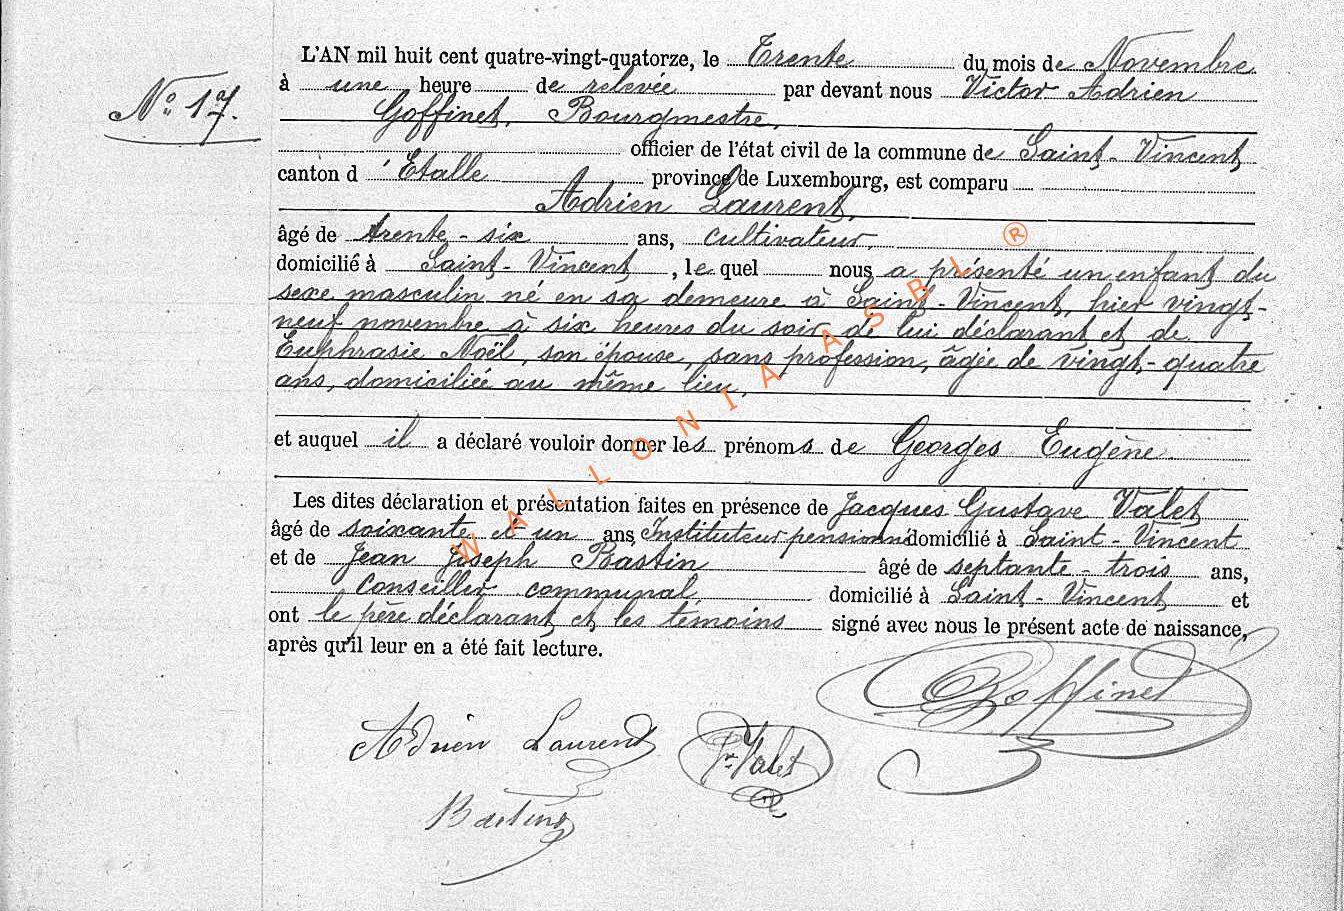 L'AN mil huit cent quatre-vingt-quatorze, le Trente du mois de Novembre
N° 17.
à une heure de relevée par devant nous Victor Adrien
Goffinet, Bourgmestre,
officier de l'état civil de la commune de Saint-Vincent
canton d'Etalle province de Luxembourg, est comparu
Adrien Laurent,
âgé de trente-six ans, cultivateur,
domicilié à Saint-Vincent, lequel nous a présenté un enfant du
sexe masculin né en sa demeure à Saint-Vincent, hier vingt-
neuf novembre à six heures du soir de lui déclarant et de
Euphrasie Noël, son épouse, sans profession, âgée de vingt-quatre
ans, domiciliée au même lieu,
et auquel il a déclaré vouloir donner les prénoms de Georges Eugène
Les dites déclaration et présentation faites en présence de Jacques Gustave Valet
âgé de soixante et un ans Instituteur pensionné domicilié à Saint-Vincent
et de Jean Joseph Bastin âgé de septante-trois ans,
Conseiller communal domicilié à Saint-Vincent et
ont le père déclarant et les témoins signé avec nous le présent acte de naissance,
après qu'il leur en a été fait lecture.
Goffinet
Adrien Laurent Valet
Bastin
WALLONIA ASBL ®